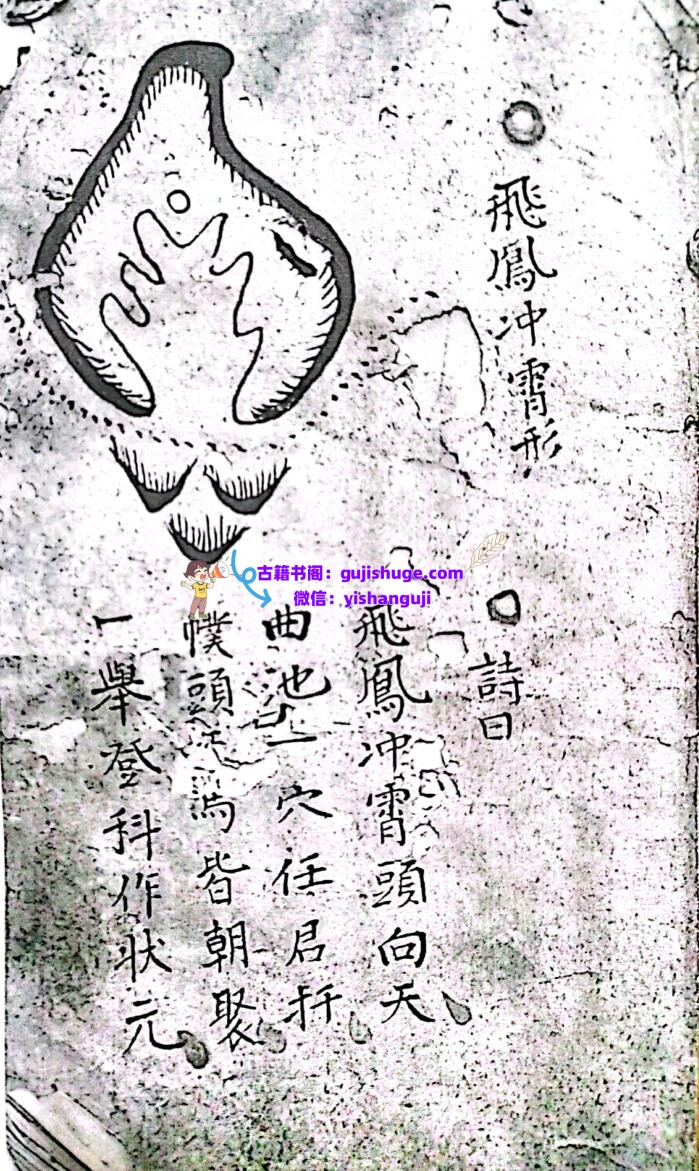 飛鳳冲霄形
詩曰
飛鳳冲霄頭向天
曲池一穴任君扦
幞頭 馬皆朝聚
一舉登科作状元
古籍书阁：gujishuge.com
微信：yishanguji